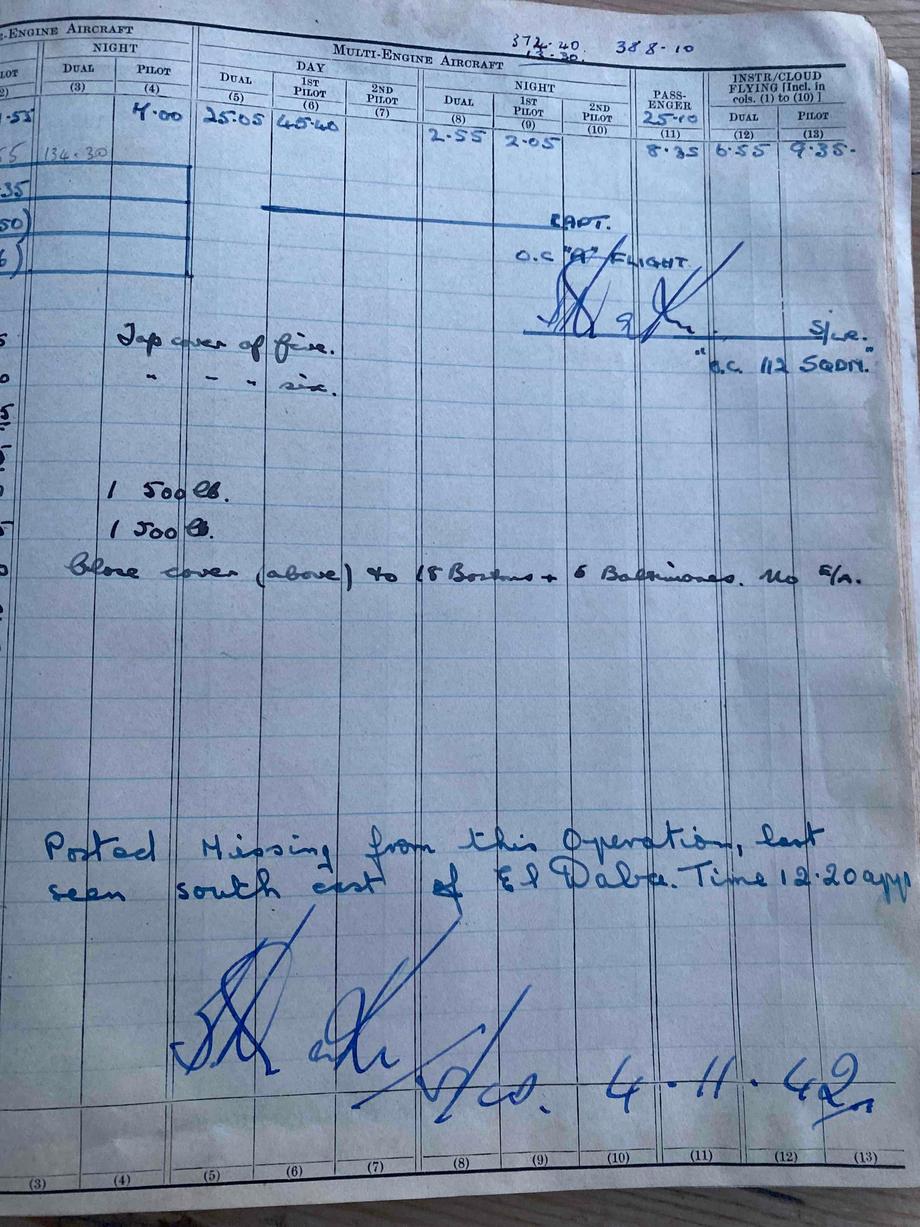 E-ENGINE AIRCRAFT
372.40 388-10
13.30.
MULTI-ENGINE AIRCRAFT
NIGHT
DAY
NIGHT
PASS-ENGER
INSTR/CLOUD FLYING [Incl. in cols. (1) to (10)]
LOT DUAL PILOT DUAL 1ST PILOT 2ND PILOT DUAL 1ST PILOT 2ND PILOT 25.10 DUAL PILOT
2) (3) (4) (5) (6) (7) (8) (9) (10) (11) (12) (13)
.55 4.00 25.05 45.40 2.55 2.05 8.35 6.55 9.35-
55 134.30
.35
50) CAPT.
6) O.C "A" FLIGHT.
S/LDR.
"O.C. 112 SQDN."
Top cover of five.
" " " six.
1 500 lb.
1 500 lb.
Close cover (above) to 18 Bostons + 6 Baltimores. No E/A.
Posted Missing from this Operation, last
seen south east of El Daba. Time 12.20 app
4.11.42
(3) (4) (5) (6) (7) (8) (9) (10) (11) (12) (13)